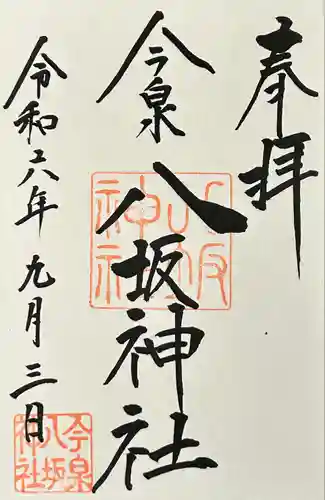 奉拝
今泉
八坂神社
令和六年九月三日
八坂神社
今泉八坂神社